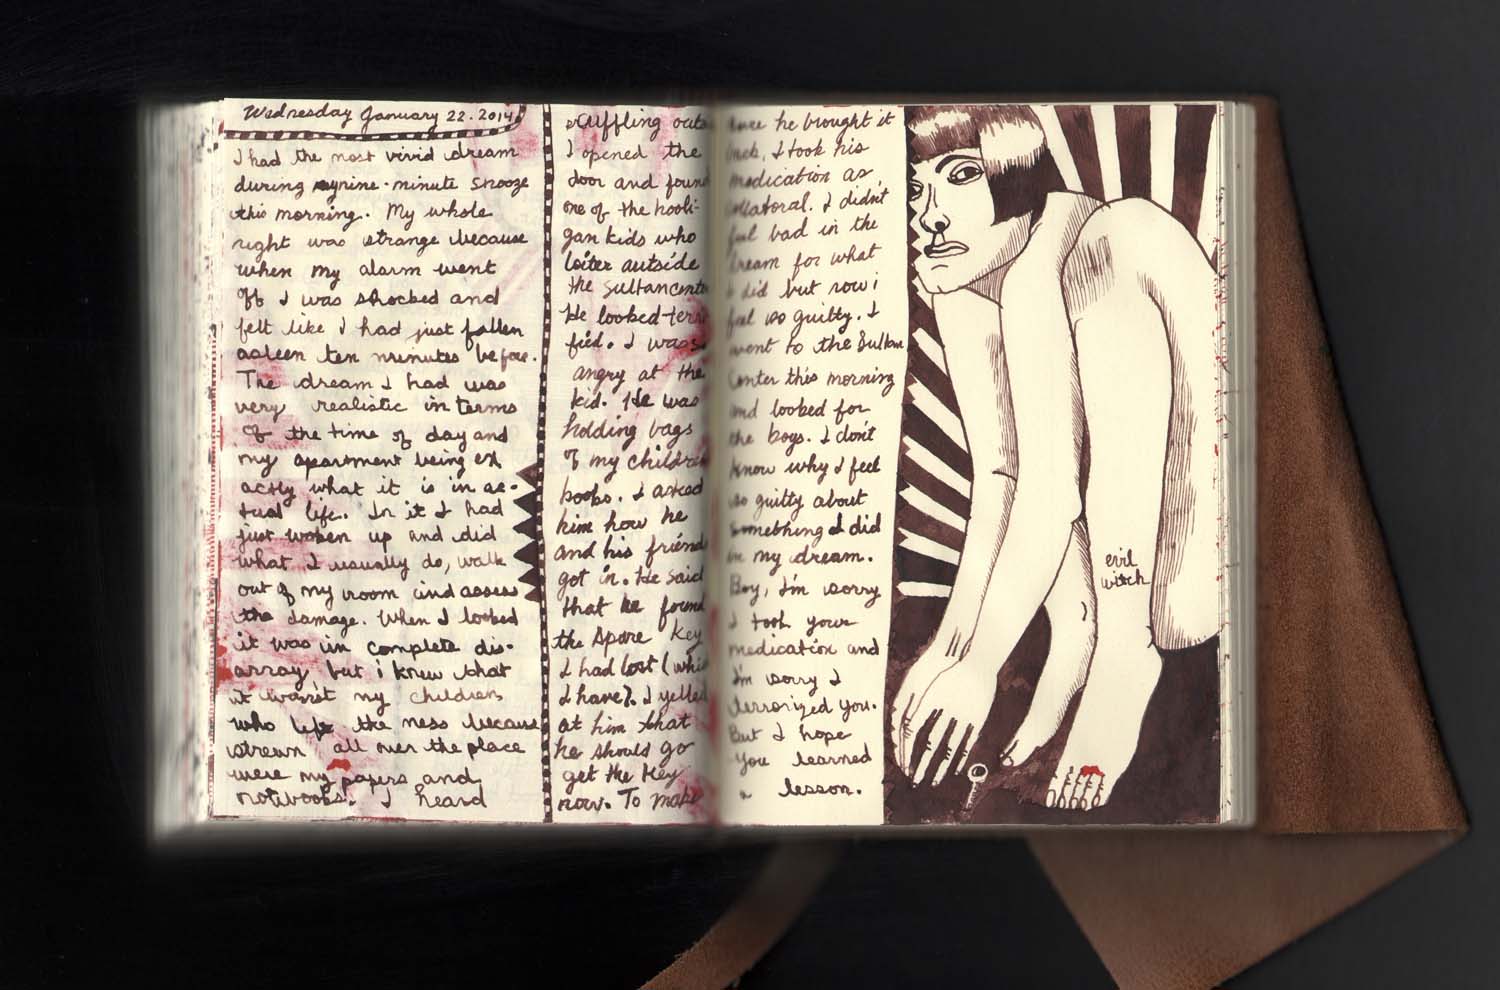 Wednesday January 22. 2014
I had the most vivid dream
during my nine-minute snooze
this morning. My whole
night was strange because
when my alarm went
off I was shocked and
felt like I had just fallen
asleen ten minutes before.
The dream I had was
very realistic in terms
of the time of day and
my apartment being ex
actly what it is in ac-
tual life. In it I had
just woken up and did
what I usually do, walk
out of my room and assess
the damage. When I looked
it was in complete dis-
array but i knew that
it wasn't my children
who left the mess because
strewn all over the place
were my papers and
notibooks. I heard
scuffling outs
I opened the
door and found
one of the hooli-
gan kids who
loiter outside
the sultan cent
He looked terri
fied. I was so
angry at the
kid. He was
holding bags
of my children
books. I asked
him how he
and his friends
got in. He said
that he found
the spare key
I had lost (which
I have). I yelled
at him that
he should go
get the key
now. To make
sure he brought it
back, I took his
medication as
collatoral. I didn't
feel bad in the
dream for what
I did but now i
feel so guilty. I
went to the Sultan
Center this morning
and looked for
the boys. I don't
know why I feel
so guilty about
something I did
in my dream.
Boy, I'm sorry
I took your
medication and
I'm sorry I
terrorized you.
But I hope
you learned
a lesson.
evil
witch